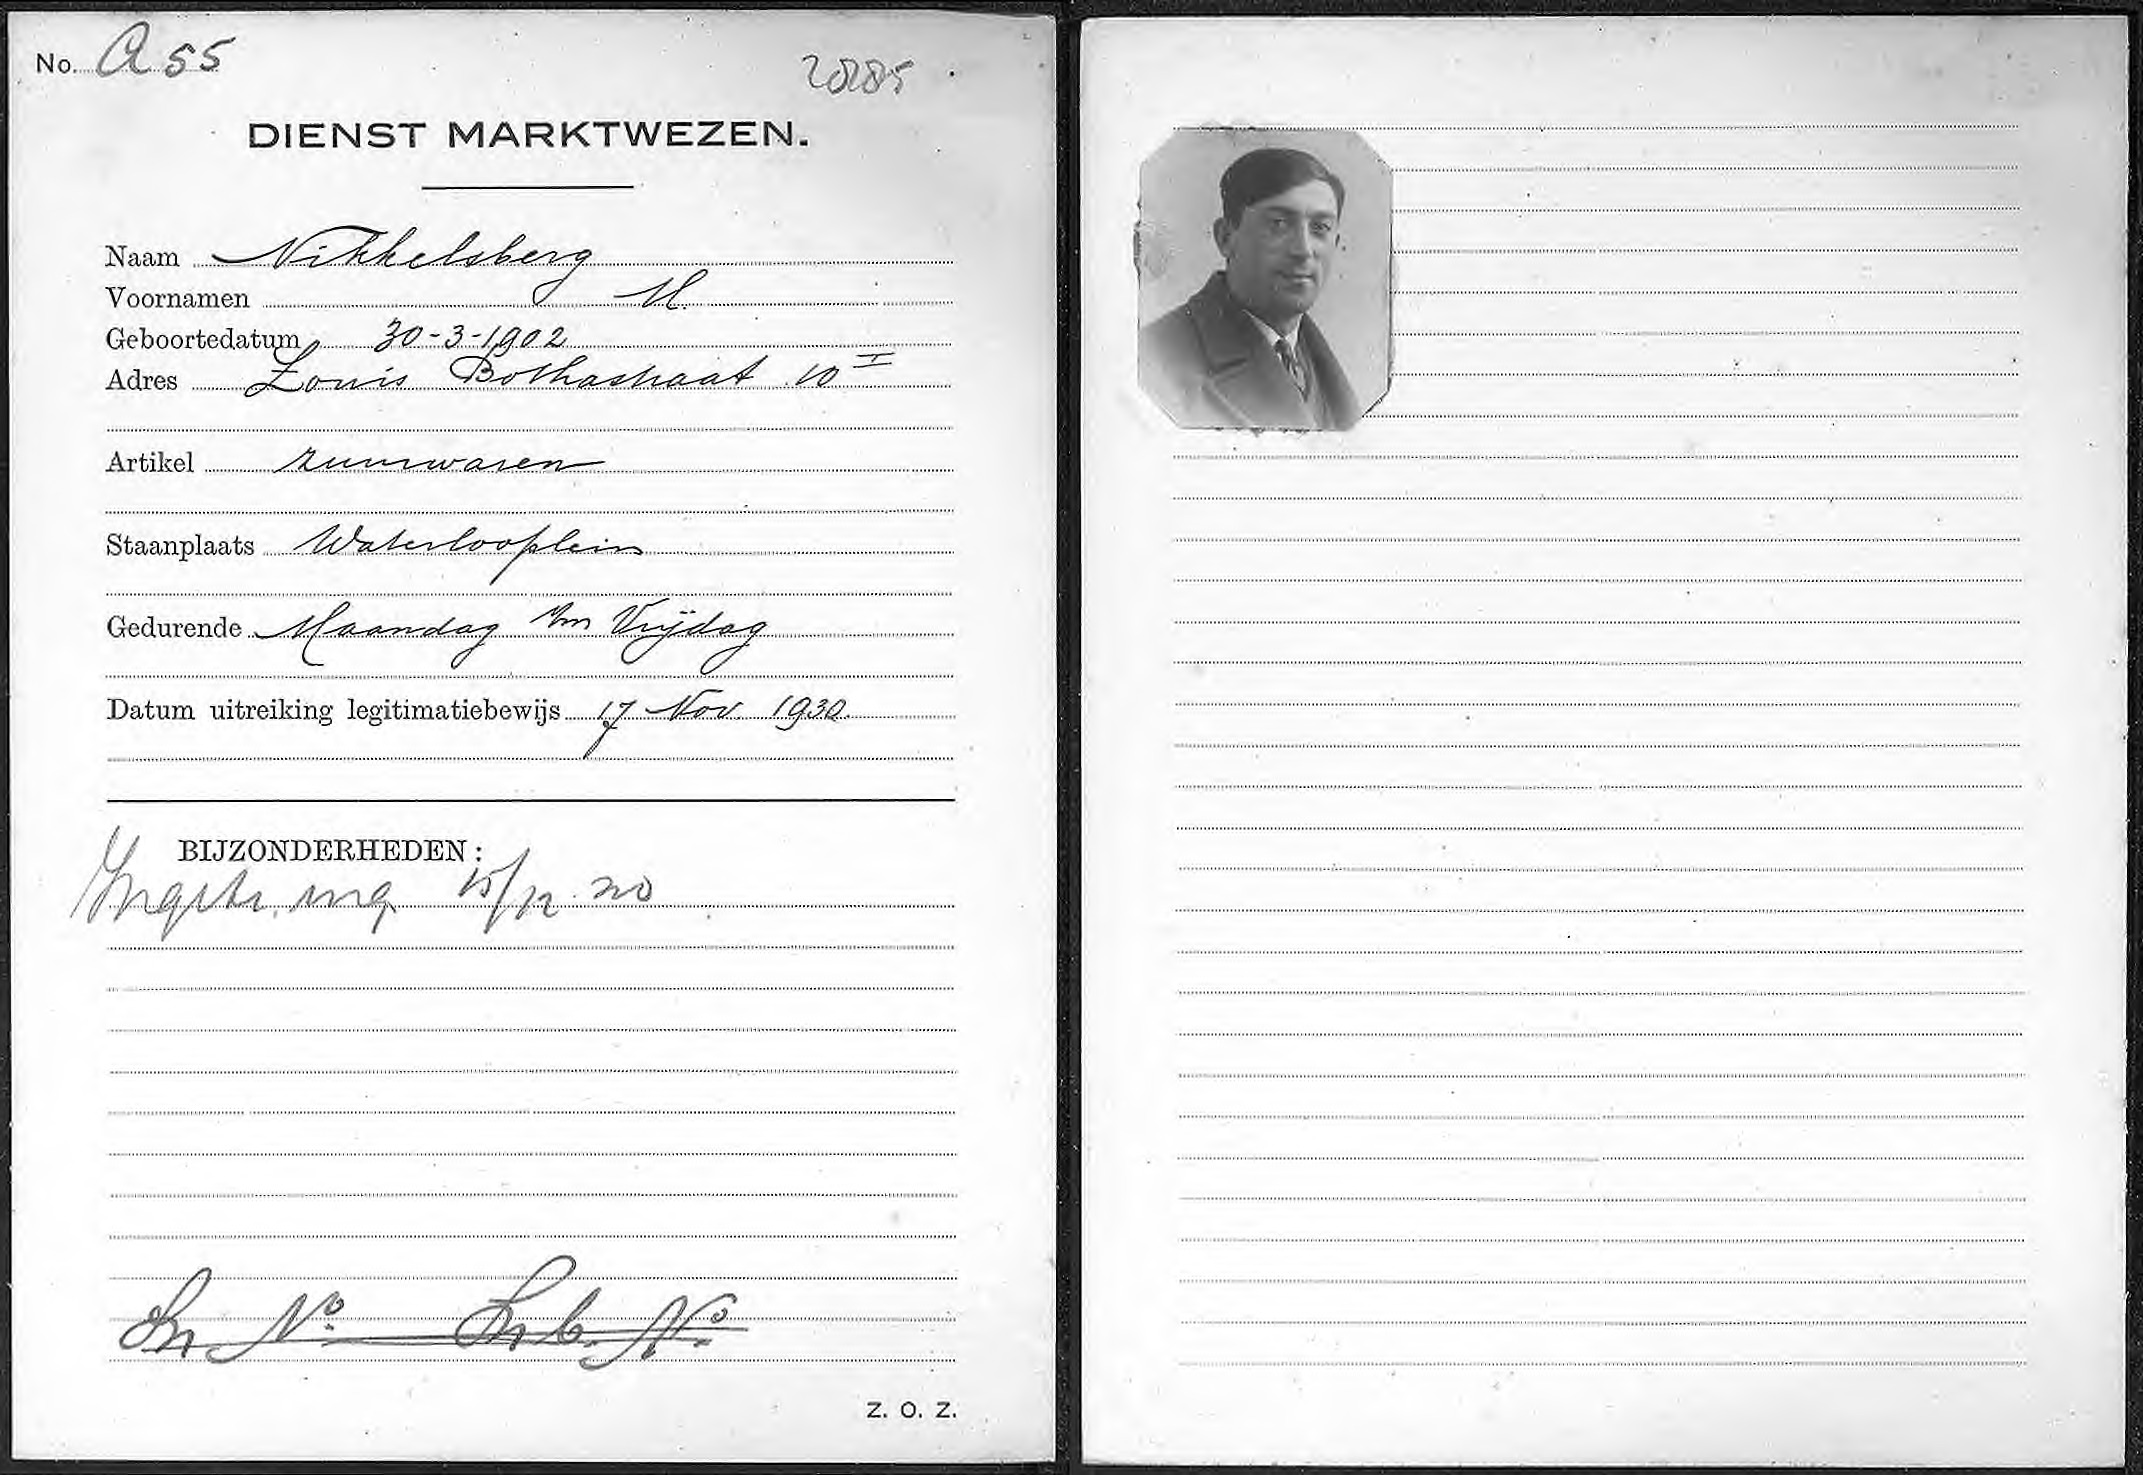 No. A 55
DIENST MARKTWEZEN.
Naam Nikkelsberg
Voornamen M.
Geboortedatum 30-3-1902
Adres Louis Bothastraat 10 I
Artikel zuurwaren
Staanplaats Waterlooplein
Gedurende Maandag t/m Vrijdag
Datum uitreiking legitimatiebewijs 17 Nov. 1930.
BIJZONDERHEDEN:
Z. O. Z.